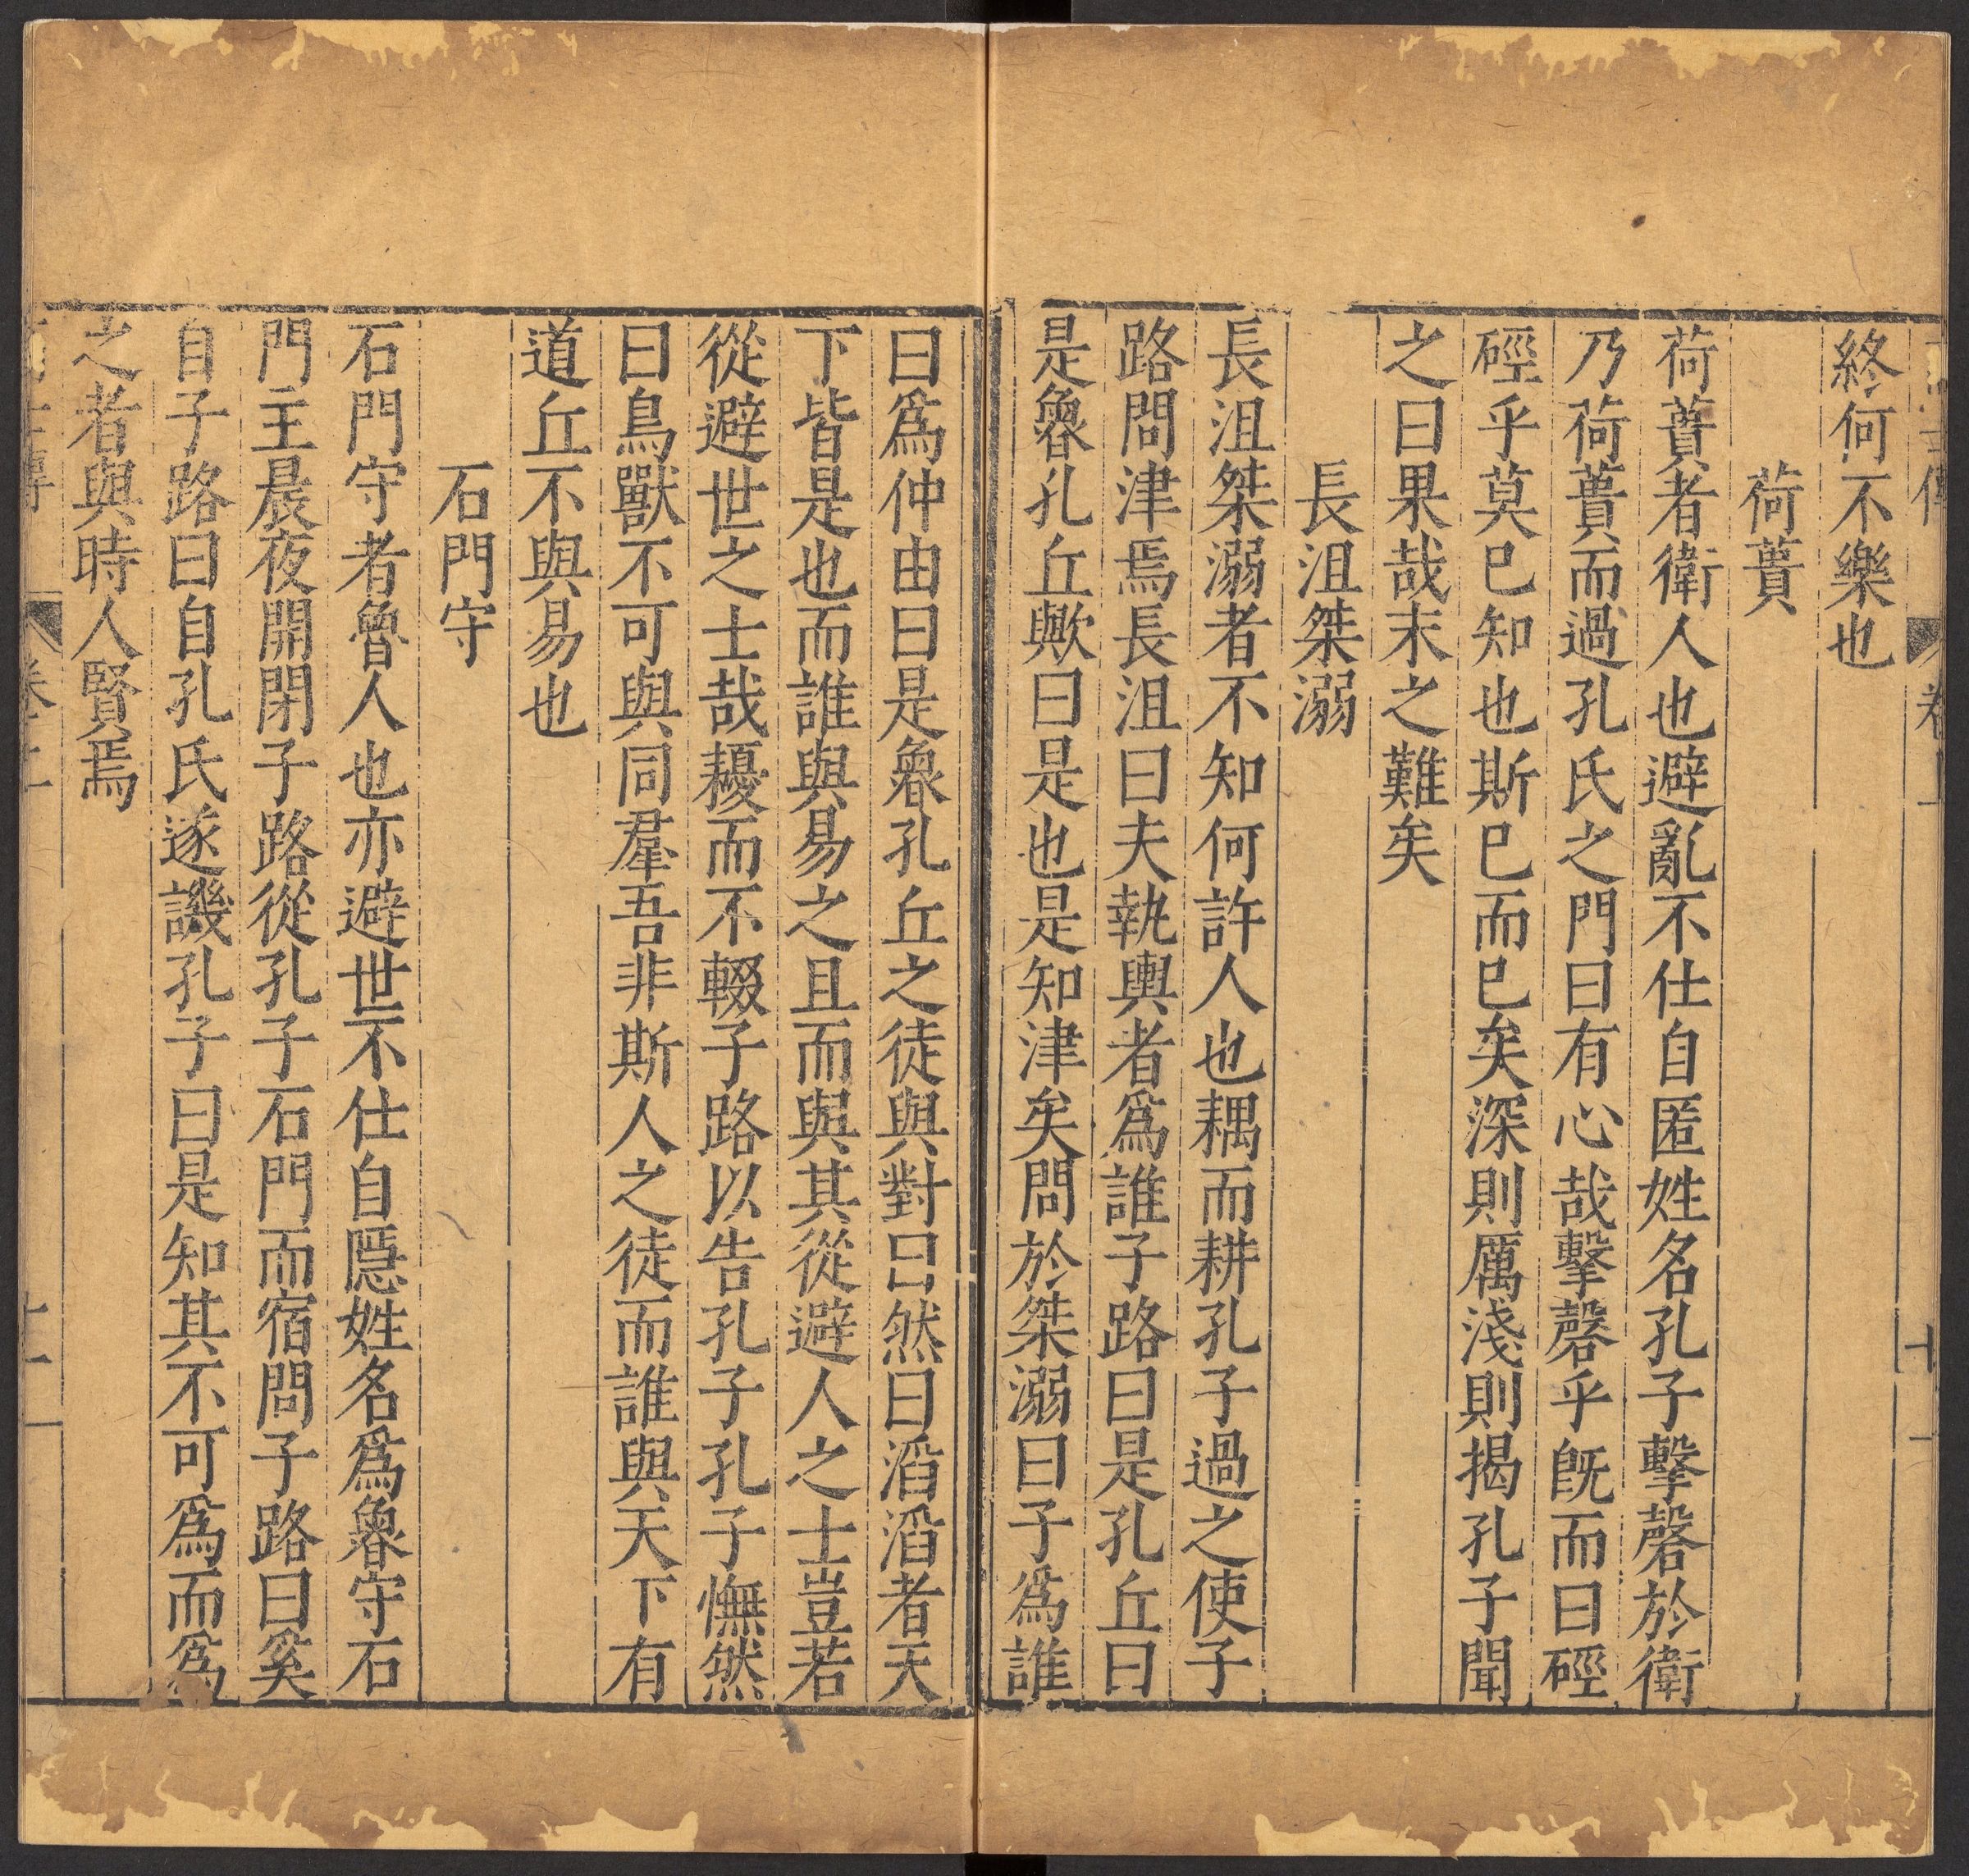 終何不樂也
荷蕢
荷蕢者衛人也避亂不仕自匿姓名孔子擊磬於衛
乃荷蕢而過孔氏之門曰有心哉擊磬乎旣而曰硜
硜乎莫已知也斯已而已矣深則厲淺則揭孔子聞
之曰果哉末之難矣
長沮桀溺
長沮桀溺者不知何許人也耦而耕孔子過之使子
路問津焉長沮曰夫執輿者爲誰子路曰是孔丘曰
是魯孔丘歟曰是也是知津矣問於桀溺曰子爲誰
曰爲仲由曰是魯孔丘之徒與對曰然曰滔滔者天
下皆是也而誰與易之且而與其從避人之士豈若
從避世之士哉耰而不輟子路以告孔子孔子憮然
曰鳥獸不可與同羣吾非斯人之徒而誰與天下有
道丘不與易也
石門守
石門守者魯人也亦避世不仕自隱姓名爲魯守石
門主晨夜開閉子路從孔子石門而宿問子路曰奚
自子路曰自孔氏遂譏孔子曰是知其不可爲而爲
之者與時人賢焉